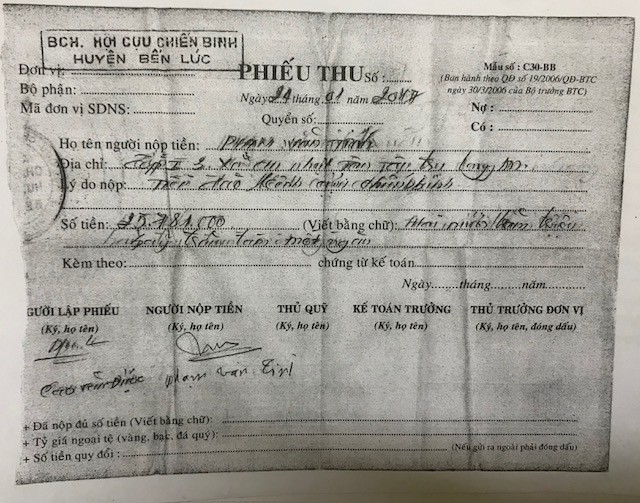 BCH. HỘI CỰU CHIẾN BINH
HUYỆN BẾN LỨC
Đơn vị:
Bộ phận:
Mã đơn vị SDNS:
PHIẾU THU
Số :
Ngày 24 tháng 01 năm 2017
Quyển số:
Mẫu số : C30-BB
(Ban hành theo QĐ số 19/2006/QĐ-BTC
ngày 30/3/2006 của Bộ trưởng BTC)
Nợ :
Có :
Họ tên người nộp tiền: Phạm Văn
Địa chỉ: Ấp 2 Xã nhựt Tân Trụ Long An
Lý do nộp: Tiền
Số tiền: 25.781.000 (Viết bằng chữ): Hai mươi lăm triệu
bảy trăm tám mốt ngàn
Kèm theo: chứng từ kế toán
Ngày tháng năm
NGƯỜI LẬP PHIẾU NGƯỜI NỘP TIỀN THỦ QUỸ KẾ TOÁN TRƯỞNG THỦ TRƯỞNG ĐƠN VỊ
(Ký, họ tên) (Ký, họ tên) (Ký, họ tên) (Ký, họ tên) (Ký, họ tên, đóng dấu)
Cao Văn phạm văn
+ Đã nộp đủ số tiền (Viết bằng chữ):
+ Tỷ giá ngoại tệ (vàng, bạc, đá quý):
+ Số tiền quy đổi : (Nếu gửi ra ngoài phải đóng dấu)